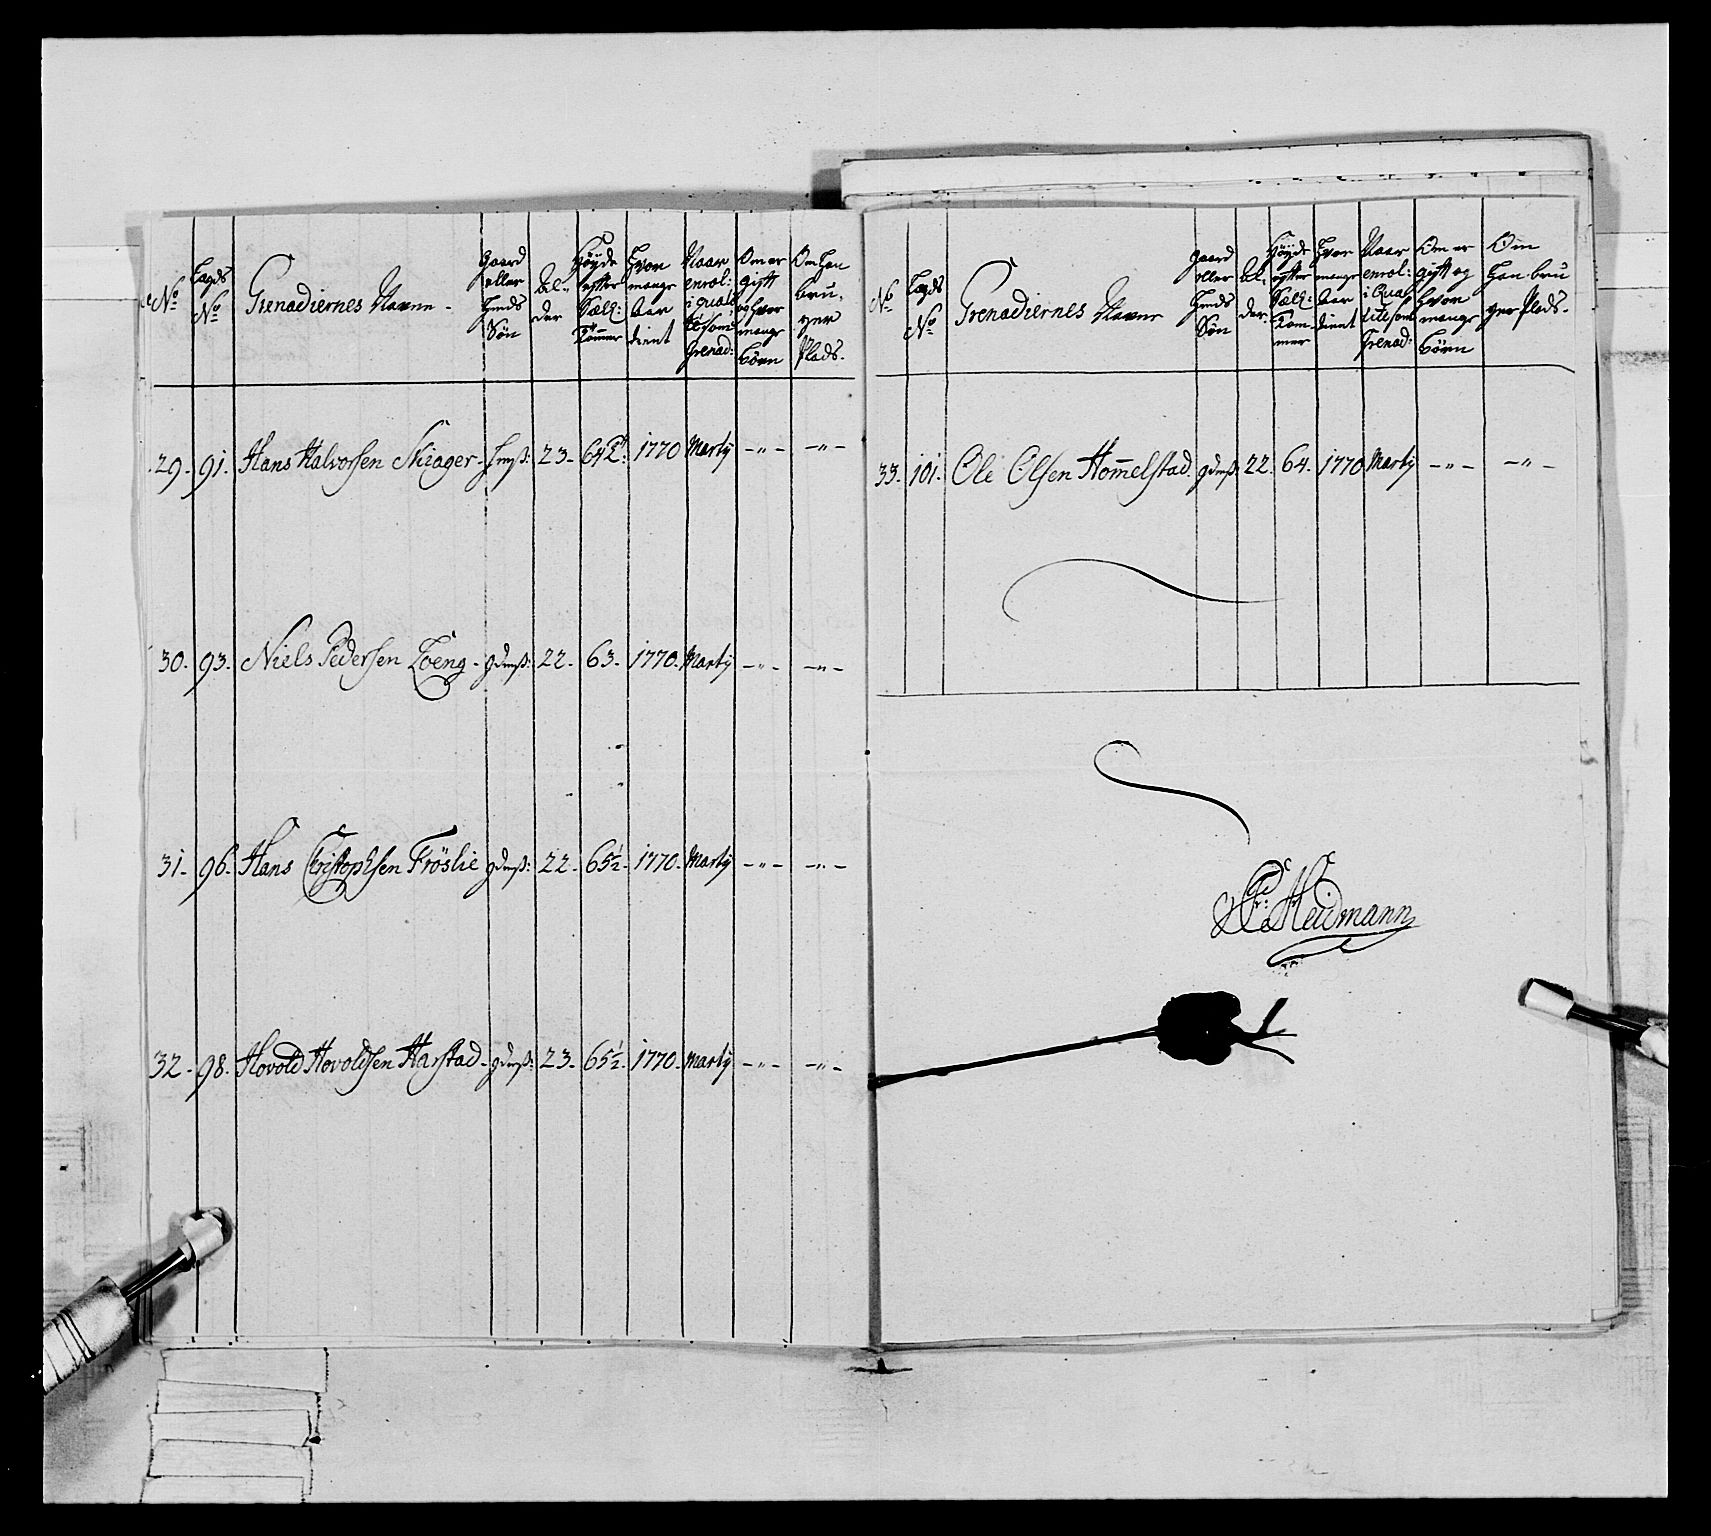 No Lægds No Grenadiernes Navne - gaard eller Huuds Søn Al- der Høyde efter Sællz: Tommer Hvor mange Aar dient Naar enrol: i qualite som grenad: Om er gift og hvor mange börn Om han bru- ger Plads.
29. 91. Hans Halvorsen Skiager - 23. 1770 Marty -"- -"-
30. 93. Niels Pedersen Loeng - gdmß: 22. 63. 1770. Marty -"- -"-
31. 96. Hans Christophsen Fröslie gdmß: 22. 65½. 1770. Marty -"- -"-
32. 98. Hovold Hovoldsen Harstad - gdmß: 23. 65½. 1770. Marty -"- -"-
No Lægds No Grenadiernes Navne gaard eller Huuds Søn Al- der. Høyde efter Sællz: Tom- mer Hvor mange Aar dient Naar enrol: i Qua- lite som grenad: Om er gift og hvor mange börn Om han bru ger Plads.
33. 101. Ole Olsen Hom̅elstad. gdmß: 22. 64. 1770 Marty -"- -"-
Fr: Heidmann